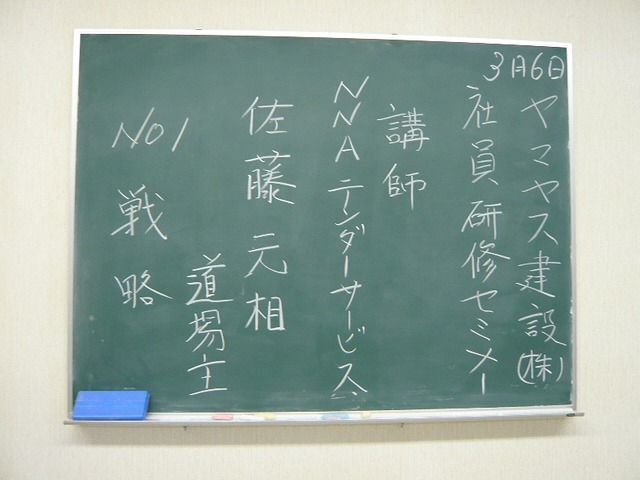 3月6日
ヤマヤス建設(株)
社員研修セミナー
講師
NNAテンダーサービス
佐藤元相
道場主
NO1戦略